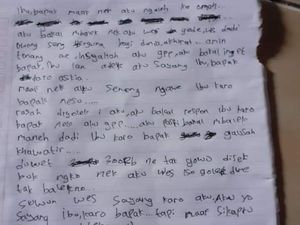 Ibu, bapak maaf nek aku ngaleh ko omah...
aku bakal mbalek nek aku wes gede, wes dadi
wong seng berguna kgs donya, akhirat... amin
tenang ae insyallah aku gpp, aku bakal inget
bapak, ibu lan adek. aku sayang ibu, bapak
karo astia...
maaf nek aku seneng ngawe ibu karo
bapak neso.....
rasah digoleki aku, aku bakal respon ibu karo
bapak nek aku gpp.... aku pasti bakal mbalek
maneh dadi ibu karo bapak gausah
khawatir....
duwet 300Rb ne tak gowo disek
buk ngko nek aku wes iso golek dwe
tak balekno..
suwun wes sayang karo aku, aku yo
sayang ibu, karo bapak... tapi maaf sikapku